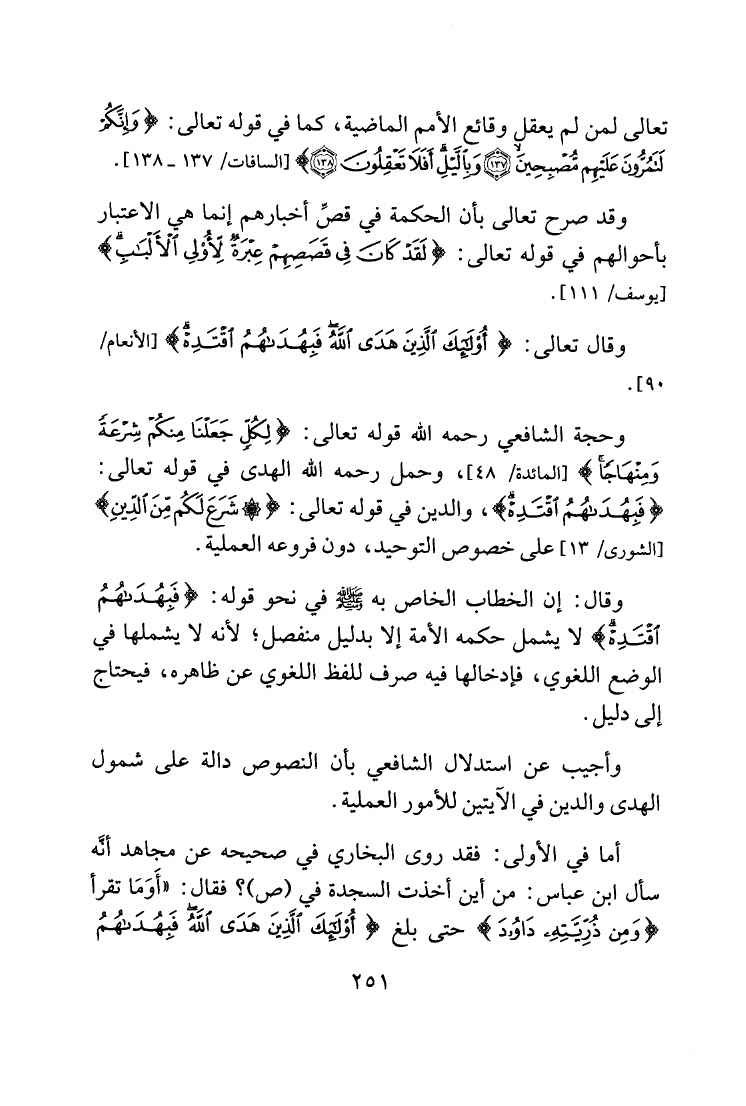 تعالى لمن لم يعقل وقائع الأمم الماضية، كما في قوله تعالى: ﴿ وَإِنَّكُمْ
لَتَمُرُّونَ عَلَيْهِم مُّصْبِحِينَ ۝١٣٧ وَبِالَّيْلِۗ أَفَلَا تَعْقِلُونَ ۝١٣٨ ﴾ [السافات/ ١٣٧ ـ ١٣٨].
وقد صرح تعالى بأن الحكمة في قصِّ أخبارهم إنما هي الاعتبار
بأحوالهم في قوله تعالى: ﴿ لَقَدْ كَانَ فِي قَصَصِهِمْ عِبْرَةٌ لِّأُوْلِي ٱلْأَلْبَٰبِۗ ﴾
[يوسف/ ١١١].
وقال تعالى: ﴿ أُوْلَٰٓئِكَ ٱلَّذِينَ هَدَى ٱللَّهُۖ فَبِهُدَىٰهُمُ ٱقْتَدِهْۗ ﴾ [الأنعام/
٩٠].
وحجة الشافعي رحمه الله قوله تعالى: ﴿ لِكُلٍّ جَعَلْنَا مِنكُمْ شِرْعَةً
وَمِنْهَاجًاۚ ﴾ [المائدة/ ٤٨]، وحمل رحمه الله الهدى في قوله تعالى:
﴿ فَبِهُدَىٰهُمُ ٱقْتَدِهْۗ ﴾، والدين في قوله تعالى: ﴿ ۞ شَرَعَ لَكُم مِّنَ ٱلدِّينِ ﴾
[الشورى/ ١٣] على خصوص التوحيد، دون فروعه العملية.
وقال: إن الخطاب الخاص به ﷺ في نحو قوله: ﴿ فَبِهُدَىٰهُمُ
ٱقْتَدِهْۗ ﴾ لا يشمل حكمه الأمة إلا بدليل منفصل؛ لأنه لا يشملها في
الوضع اللغوي، فإدخالها فيه صرف للفظ اللغوي عن ظاهره، فيحتاج
إلى دليل.
وأجيب عن استدلال الشافعي بأن النصوص دالة على شمول
الهدى والدين في الآيتين للأمور العملية.
أما في الأولى: فقد روى البخاري في صحيحه عن مجاهد أنَّه
سأل ابن عباس: من أين أخذت السجدة في (ص)؟ فقال: «أَوَمَا تقرأ
﴿ وَمِن ذُرِّيَّتِهِۦ دَاوُۥدَ ﴾ حتى بلغ ﴿ أُوْلَٰٓئِكَ ٱلَّذِينَ هَدَى ٱللَّهُۖ فَبِهُدَىٰهُمُ
٢٥١